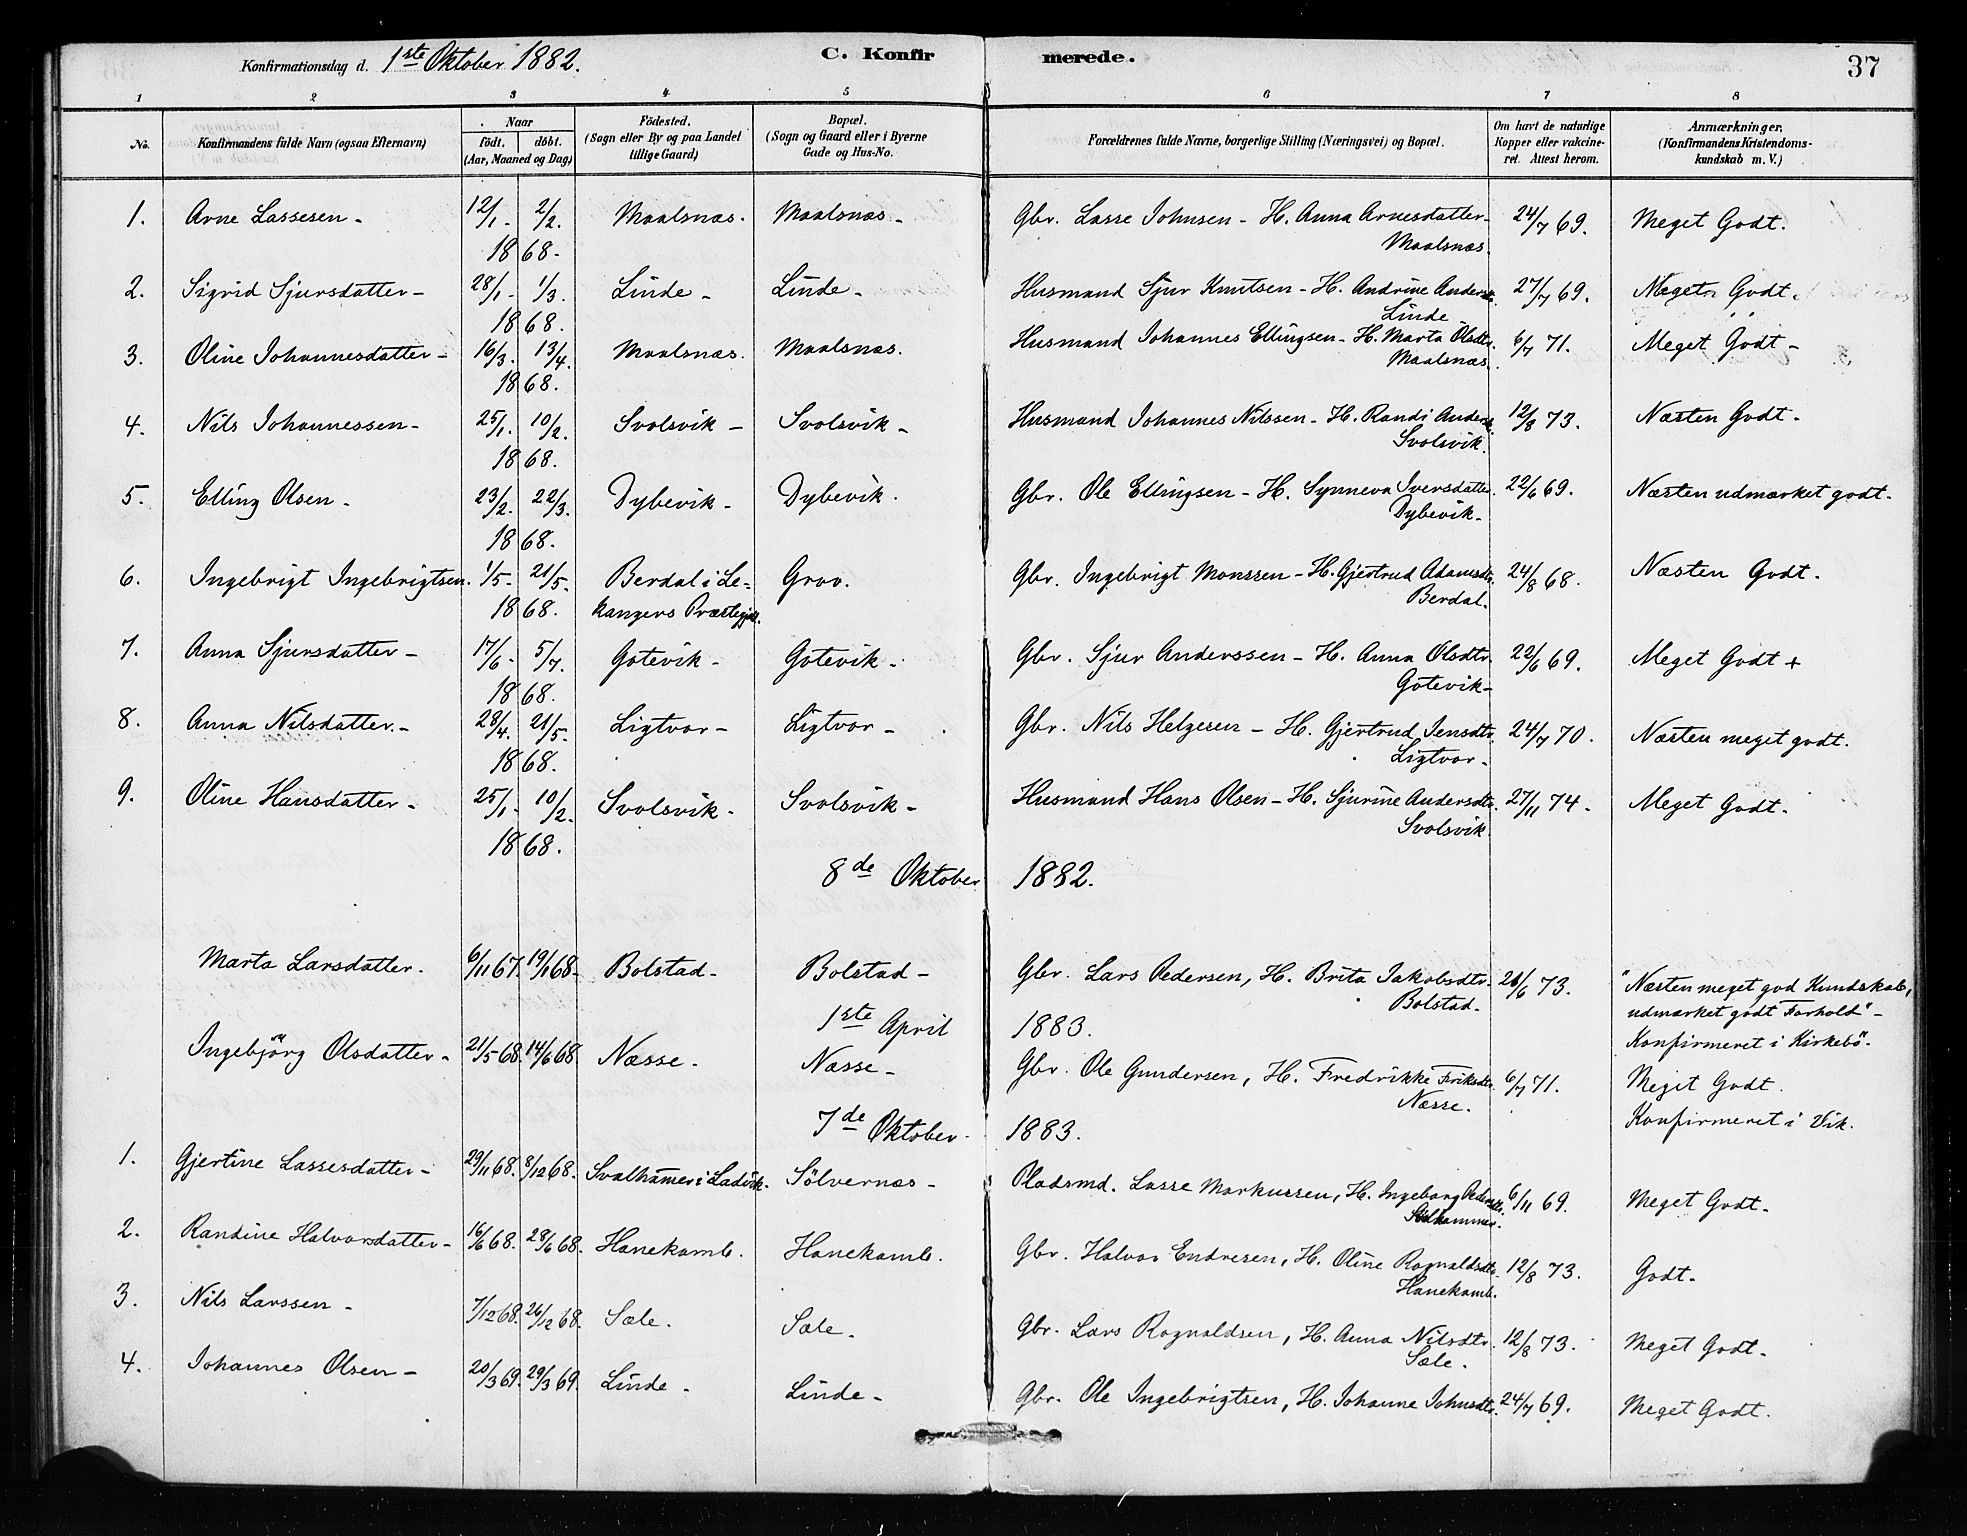 Konfirmationsdag d. 1ste Oktober 1882. C. Konfirmerede. 37
1 2 3 4 5 6 7 8
No. Konfirmandens fulde Navn (ogsaa Efternavn) Naar födt. döbt. (Aar, Maaned og Dag) Födested. (Sogn eller By og paa Landet tillige Gaard) Bopæl. (Sogn og Gaard eller i Byerne Gade og Hus-No. Forældrenes fulde Navne, borgerlige Stilling (Næringsvei) og Bopæl. Om havt de naturlige Kopper eller vakcineret. Attest herom. Anmærkninger. (Konfirmandens Kristendomskundskab m. V.)
1. Arne Lassesen - 12/1. 2/2. Maalsnæs. Maalsnæs - Gbr. Lasse Johnsen - H. Anna Arnesdatter - 24/7 69. Meget Godt.
1868. Maalsnæs.
2. Sigrid Sjursdatter - 28/1 - 1/3. Linde - Linde - Husmand Sjur Knutsen - H. Andrine Andersdtr. 27/7 69. Meget Godt.
1868. Linde
3. Oline Johannesdatter - 16/3. 13/4. Maalsnæs. Maalsnæs. Husmand Johannes Ellingsen - H. Marta Olsdtr. 6/7 71. Meget Godt -
1868. Maalsnæs.
4. Nils Johannessen - 25/1. 10/2. Svolsvik - Svolsvik - Husmand Johannes Nilssen - H. Randi Andersd. 12/8 73. Næsten Godt -
1868. Svolsvik.
5. Elling Olsen - 23/2. 22/3. Dybevik - Dybevik. Gbr. Ole Ellingsen - H. Synneva Iversdatter. 22/6 69. Næsten udmærket godt.
1868. Dybevik -
6. Ingebrigt Ingebrigtsen. 1/5 - 21/5. Berdal i Le- Grov. Gbr. Ingebrigt Monssen - H. Gjertrud Adamsdtr. 24/8 68. Næsten Godt.
1868. kangers Præstegjeld. Berdal.
7. Anna Sjursdatter - 17/6 - 5/7. Gotevik - Gotevik - Gbr. Sjur Anderssen - H. Anna Olsdtr. 22/6 69. Meget Godt +
1868. Gotevik -
8. Anna Nilsdatter. - 28/4. 21/5. Ligtvor - Ligtvor - Gbr. Nils Helgesen - H. Gjertrud Jensdtr. 24/7 70. Næsten meget godt.
1868. Ligtvor -
9. Oline Hansdatter - 25/1 - 10/2. Svolsvik - Svolsvik - Husmand Hans Olsen - H. Sjurine Andersdtr. 27/11 74 - Meget Godt.
1868. Svolsvik
8de Oktober 1882.
Marta Larsdatter. 6/11 67. 19/1 68 - Bolstad - Bolstad - Gbr. Lars Pedersen, H. Brita Jakobsdtr. /6 73. "Næsten meget god Kundskab,
Bolstad. udmærket godt Forhold" -
1ste April 1883. Konfirmeret i Kirkebö.
Ingebjörg Olsdatter - 21/5 68. 14/6 68. Næsse. Næsse - Gbr. Ole Gundersen, H. Fredrikke Eriksdtr. 6/7 71. Meget Godt.
Næsse. Konfirmeret i Vik.
7de Oktober. 1883.
1. Gjertine Lassesdatter - 29/11 68. 8/12 68. Svalhamer i Ladvik. Sölvernæs - Pladsmd. Lasse Markussen, H. Ingeborg Pedersdtr. 6/11 69. Meget Godt.
2. Randine Halvorsdatter - 16/6 68. 28/6 68. Hanekamb. Hanekamb. Gbr. Halvor Endresen, H. Oline Rognaldsdtr. 12/8 73. Godt.
Hanekamb.
3. Nils Larssen - 7/12 68. 26/12 68. Sæle. Sæle. Gbr. Lars Rognaldsen, H. Anna Nilsdtr. 12/8 73. Meget Godt.
Sæle.
4. Johannes Olsen - 20/3 69. 29/3 69. Linde. Linde - Gbr. Ole Ingebrigtsen, H. Johanne Johnsdtr. 24/7 69. Meget Godt.